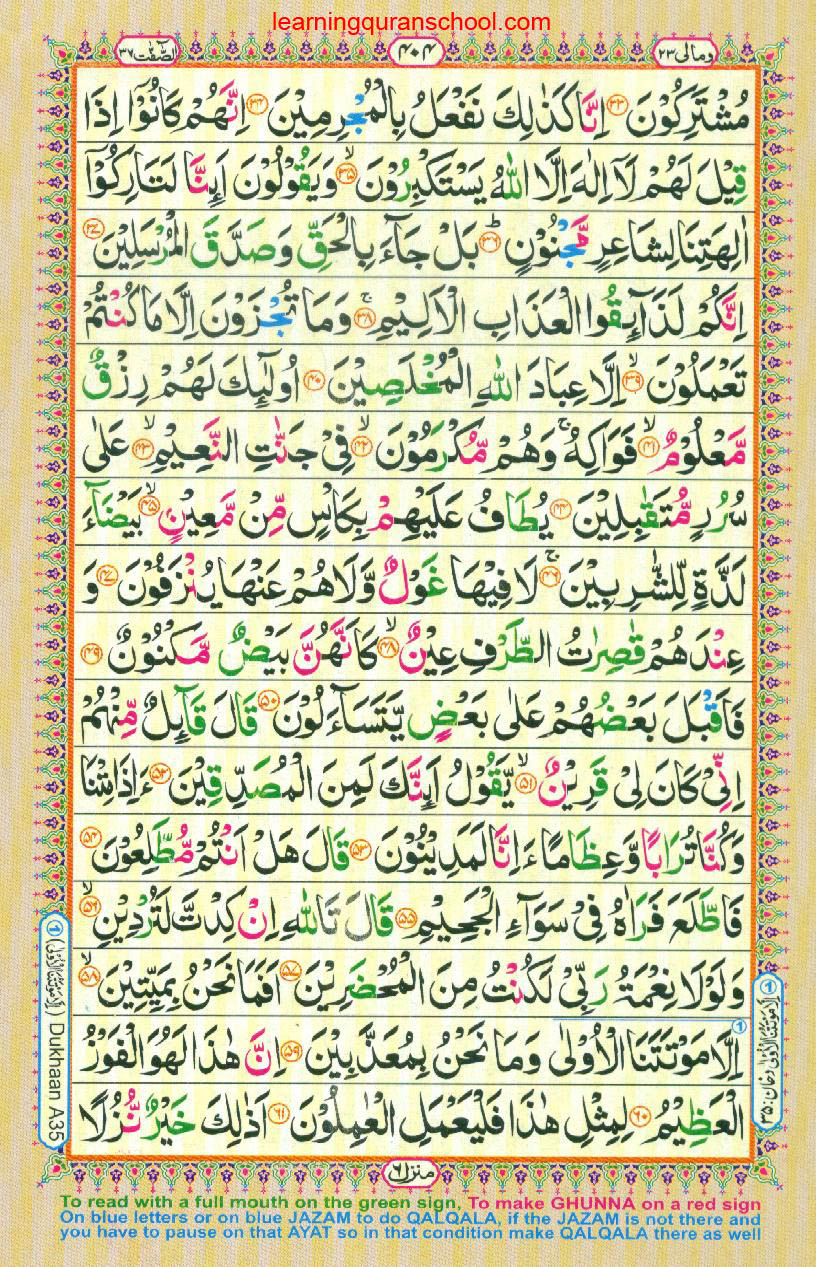 learningquranschool.com
ومالی ۲۳
۴۰۴
الصّٰفّٰت ۳۷
مُشْتَرِكُوْنَ ۳۳ اِنَّا كَذٰلِكَ نَفْعَلُ بِالْمُجْرِمِيْنَ ۳۴ اِنَّهُمْ كَانُوْۤا اِذَا
قِيْلَ لَهُمْ لَاۤ اِلٰهَ اِلَّا اللّٰهُ يَسْتَكْبِرُوْنَ ۙ ۳۵ وَيَقُوْلُوْنَ اَىِٕنَّا لَتَارِكُوْۤا
اٰلِهَتِنَا لِشَاعِرٍ مَّجْنُوْنٍ ؕ ۳۶ بَلْ جَآءَ بِالْحَقِّ وَصَدَّقَ الْمُرْسَلِيْنَ ۳۷
اِنَّكُمْ لَذَآىِٕقُوا الْعَذَابِ الْاَلِيْمِ ۚ ۳۸ وَمَا تُجْزَوْنَ اِلَّا مَا كُنْتُمْ
تَعْمَلُوْنَ ۙ ۳۹ اِلَّا عِبَادَ اللّٰهِ الْمُخْلَصِيْنَ ۴۰ اُولٰٓىِٕكَ لَهُمْ رِزْقٌ
مَّعْلُوْمٌ ۙ ۴۱ فَوَاكِهُ ۚ وَهُمْ مُّكْرَمُوْنَ ۙ ۴۲ فِیْ جَنّٰتِ النَّعِيْمِ ۙ ۴۳ عَلٰی
سُرُرٍ مُّتَقٰبِلِيْنَ ۴۴ يُطَافُ عَلَيْهِمْ بِكَاْسٍ مِّنْ مَّعِيْنٍ ۙ ۴۵ بَيْضَآءَ
لَذَّةٍ لِّلشّٰرِبِيْنَ ۚ ۴۶ لَا فِيْهَا غَوْلٌ وَّلَا هُمْ عَنْهَا يُنْزَفُوْنَ ۴۷ وَ
عِنْدَهُمْ قٰصِرٰتُ الطَّرْفِ عِيْنٌ ۙ ۴۸ كَاَنَّهُنَّ بَيْضٌ مَّكْنُوْنٌ ۴۹
فَاَقْبَلَ بَعْضُهُمْ عَلٰی بَعْضٍ يَّتَسَآءَلُوْنَ ۵۰ قَالَ قَآىِٕلٌ مِّنْهُمْ
اِنِّیْ كَانَ لِیْ قَرِيْنٌ ۙ ۵۱ يَّقُوْلُ اَىِٕنَّكَ لَمِنَ الْمُصَدِّقِيْنَ ۵۲ ءَاِذَا مِتْنَا
وَكُنَّا تُرَابًا وَّعِظَامًا ءَاِنَّا لَمَدِيْنُوْنَ ۵۳ قَالَ هَلْ اَنْتُمْ مُّطَّلِعُوْنَ ۵۴
فَاطَّلَعَ فَرَاٰهُ فِیْ سَوَآءِ الْجَحِيْمِ ۵۵ قَالَ تَاللّٰهِ اِنْ كِدْتَّ لَتُرْدِيْنِ ۙ ۵۶
وَلَوْلَا نِعْمَةُ رَبِّیْ لَكُنْتُ مِنَ الْمُحْضَرِيْنَ ۵۷ اَفَمَا نَحْنُ بِمَيِّتِيْنَ ۙ ۵۸
اِلَّا مَوْتَتَنَا الْاُوْلٰی وَمَا نَحْنُ بِمُعَذَّبِيْنَ ۵۹ اِنَّ هٰذَا لَهُوَ الْفَوْزُ
الْعَظِيْمُ ۶۰ لِمِثْلِ هٰذَا فَلْيَعْمَلِ الْعٰمِلُوْنَ ۶۱ اَذٰلِكَ خَيْرٌ نُّزُلًا
① اِلَّا مَوْتَتَنَا الْاُوْلٰی دخان: ۳۵
① (اِلَّا مَوْتَتَنَا الْاُوْلٰی) Dukhaan A35
منزل ۶
To read with a full mouth on the green sign, To make GHUNNA on a red sign
On blue letters or on blue JAZAM to do QALQALA, if the JAZAM is not there and
you have to pause on that AYAT so in that condition make QALQALA there as well